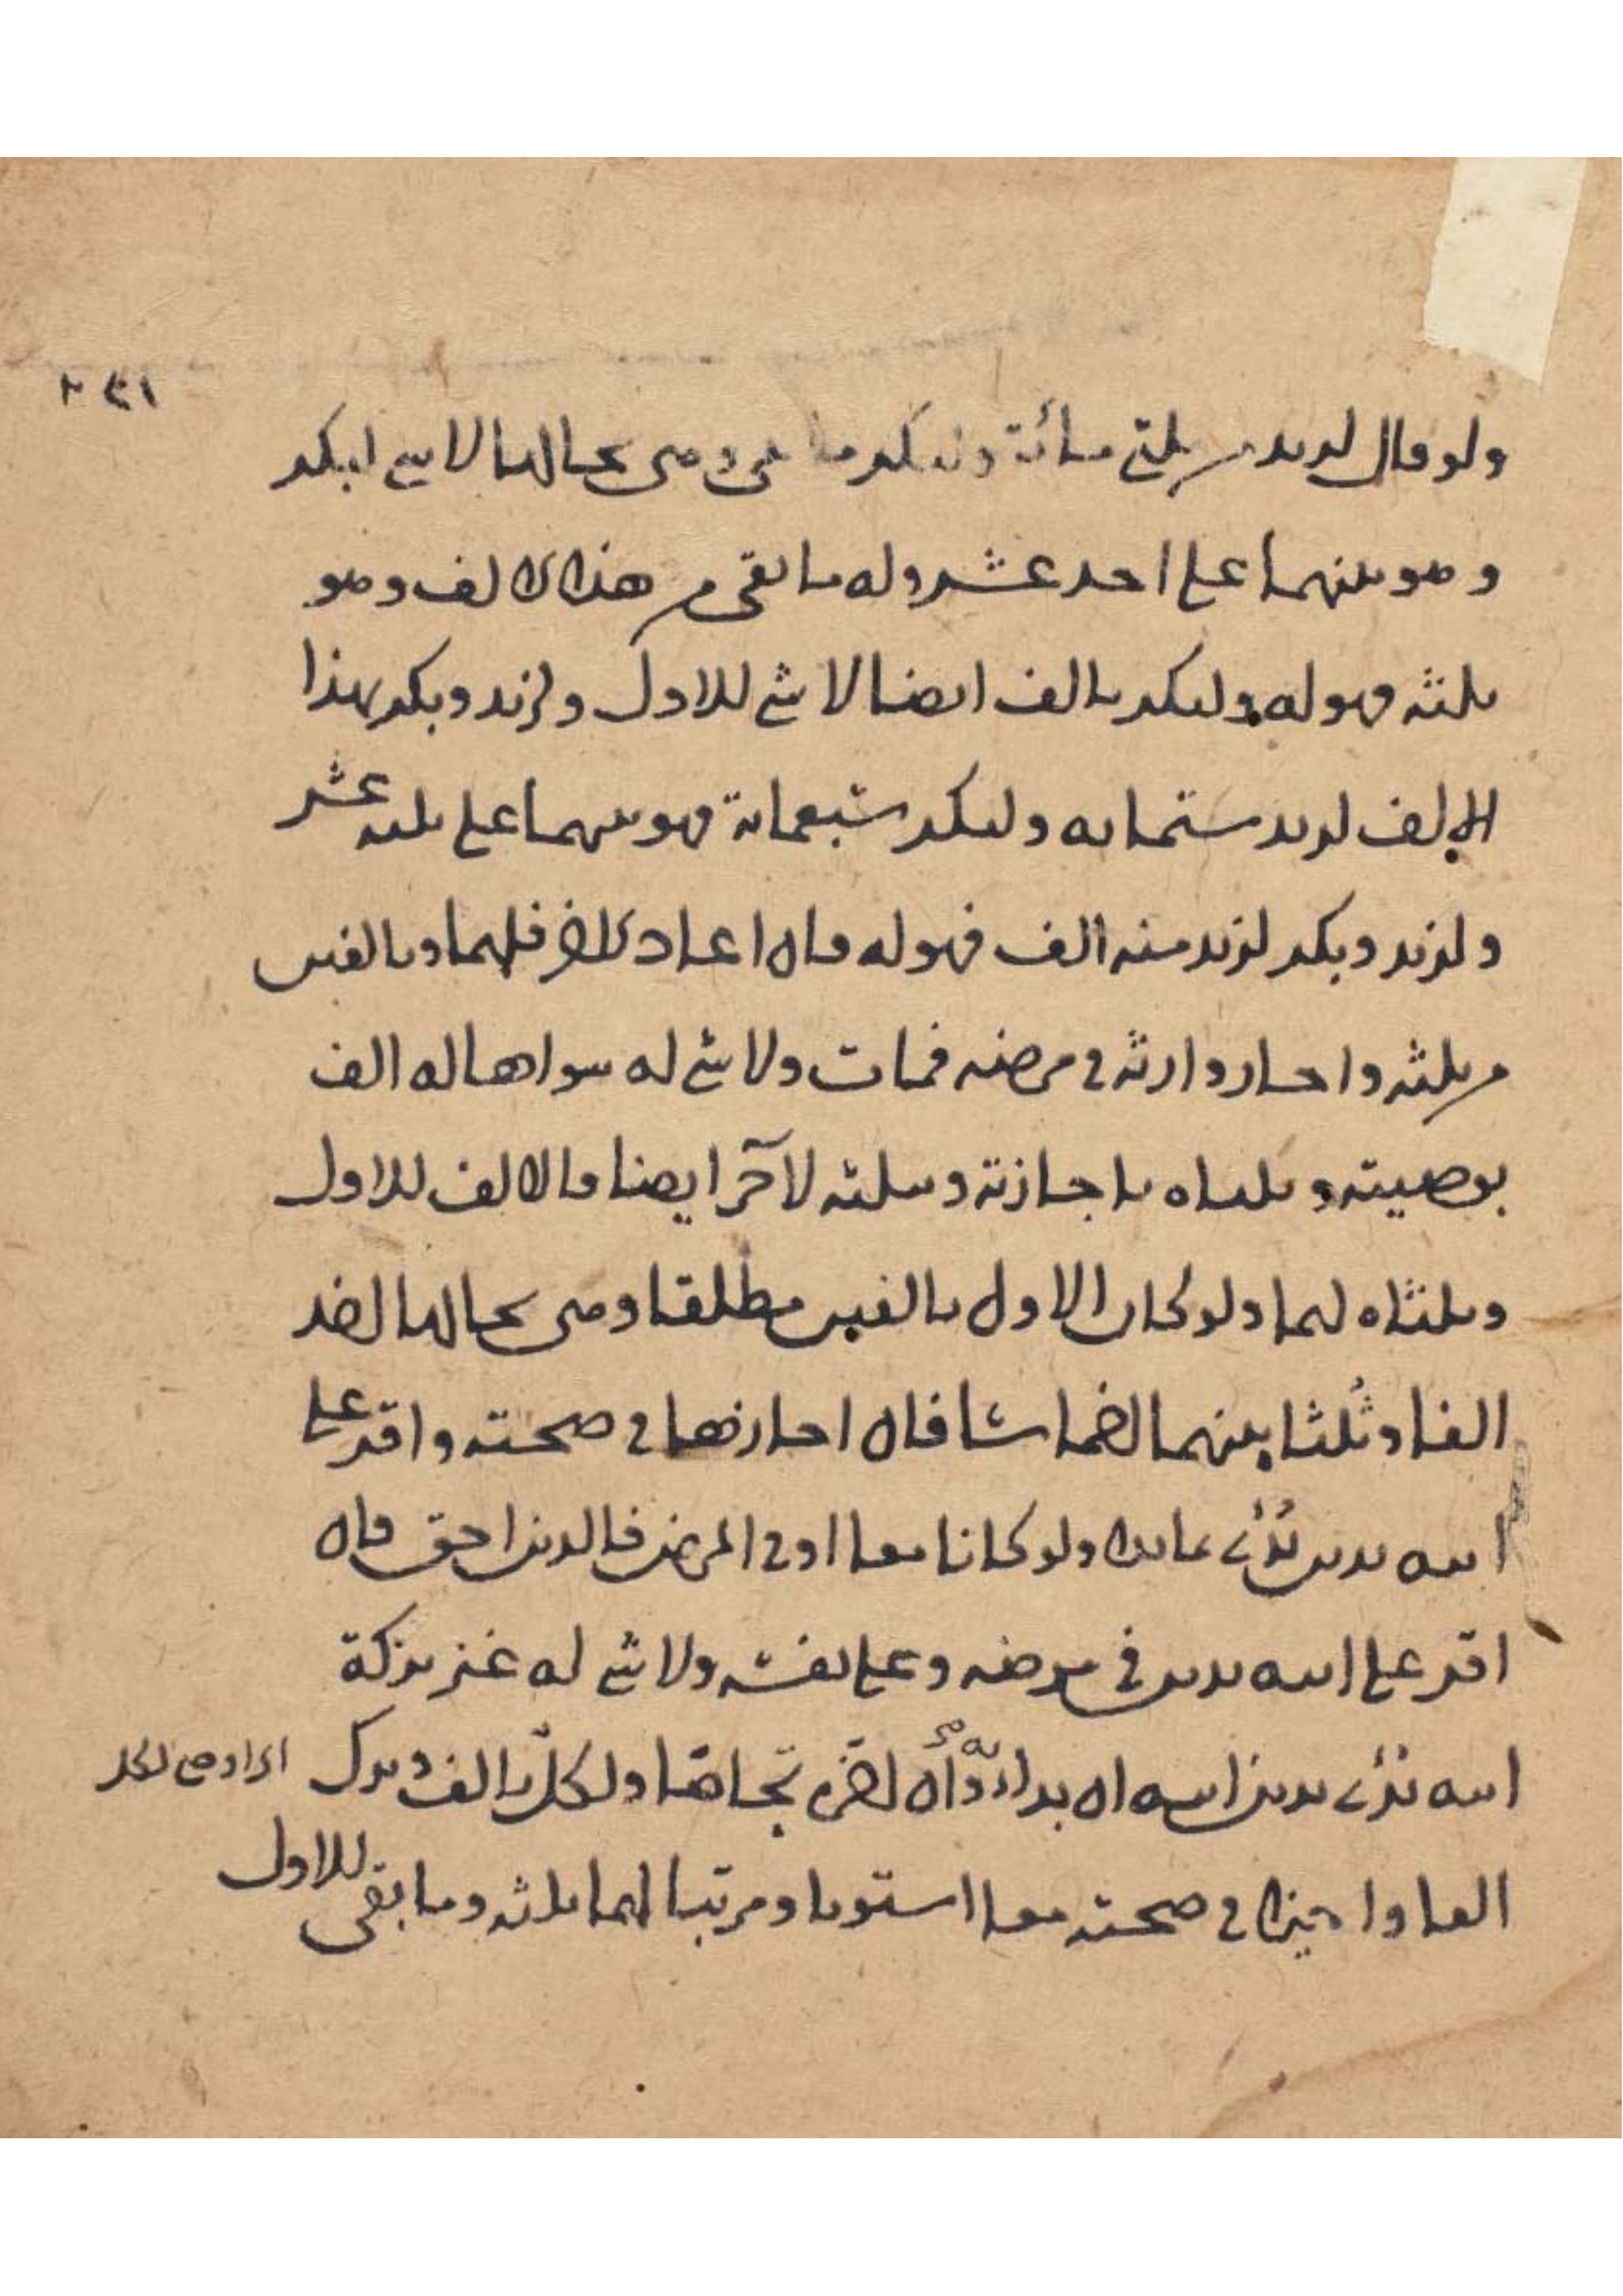 ولو قال لزيد من ثلثي مائة ولبكر ما بقى وهى بحالها لا شي لبكر
وهو بينهما على احد عشر وله ما بقى من هذا الالف وهو
ثلثه فهو له ولبكر بالف ايضا لا شي للاول ولزيد وبكر بهذا
الالف لزيد ستمايه ولبكر سبعماية فهو بينهما على ثلثه عشر
ولزيد وبكر لزيد منه الف فهو له فان اعاد فلهما وبالفين
من ثلثه واجاز وارثه في مرضه فمات ولا شي له سواها له الف
بوصيته وثلثاه باجازته وبثلثه لآخر ايضا فالالف للاول
وثلثاه لهما ولو كان الاول بالفين مطلقا وهى بحالها
الفا وثلثا بينهما فان اجازها في صحته واقر على
ابيه بدين بُدئ ولو كانا معا او في المرض فالدين احق فان
اقر على ابيه بدين في مرضه وعلى نفسه ولا شي له غير تركة
ابيه بُدئ بدين ابيه ان بدا ولكل بالف وترك
الفا واجيزا في صحته معا استويا ومرتبا لهما ثلثه وما بقى للاول